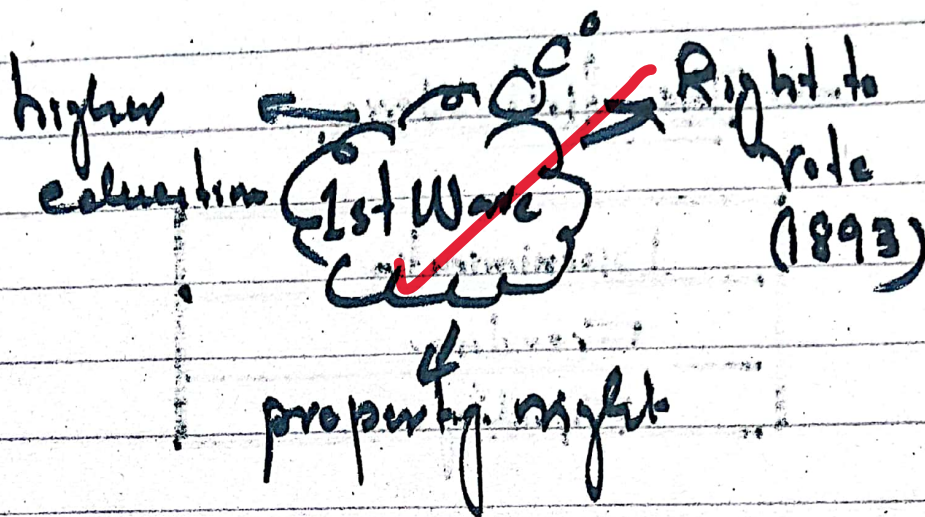 higher
education
1st Wave
Right to
vote
(1893)
property right